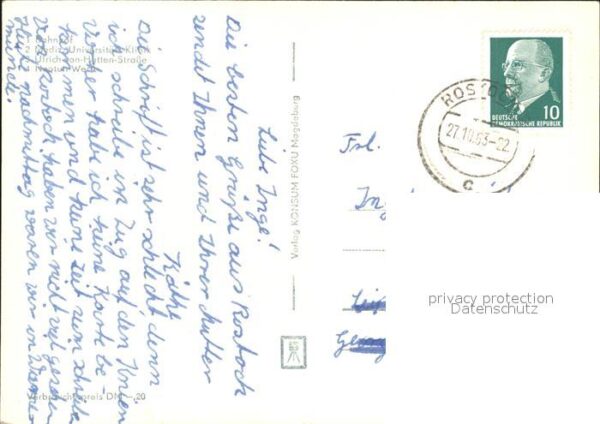 Bahnhof
2 Medizin. Universitäts-Klinik
3 Ulrich-von-Hutten-Straße
4 Neptun-Werft
Liebe Inge!
Die besten Grüße aus Rostock
sendet Ihnen und Ihrer Mutter
Käthe
Die Schrift ist sehr schlecht denn
ich schreibe im Zug auf den Knien
Vorher habe ich keine Karte be-
kommen und keine Zeit zum schreiben
Von Rostock haben wir nicht viel gesehen
Heute nachmittag waren wir in Warne-
münde.
Verbraucherpreis DM -,20
Verlag KONSUM FOXU Magdeburg
ROSTOCK
27.10.63-22
C
DEUTSCHE
DEMOKRATISCHE REPUBLIK
10
Frl.
privacy protection
Datenschutz